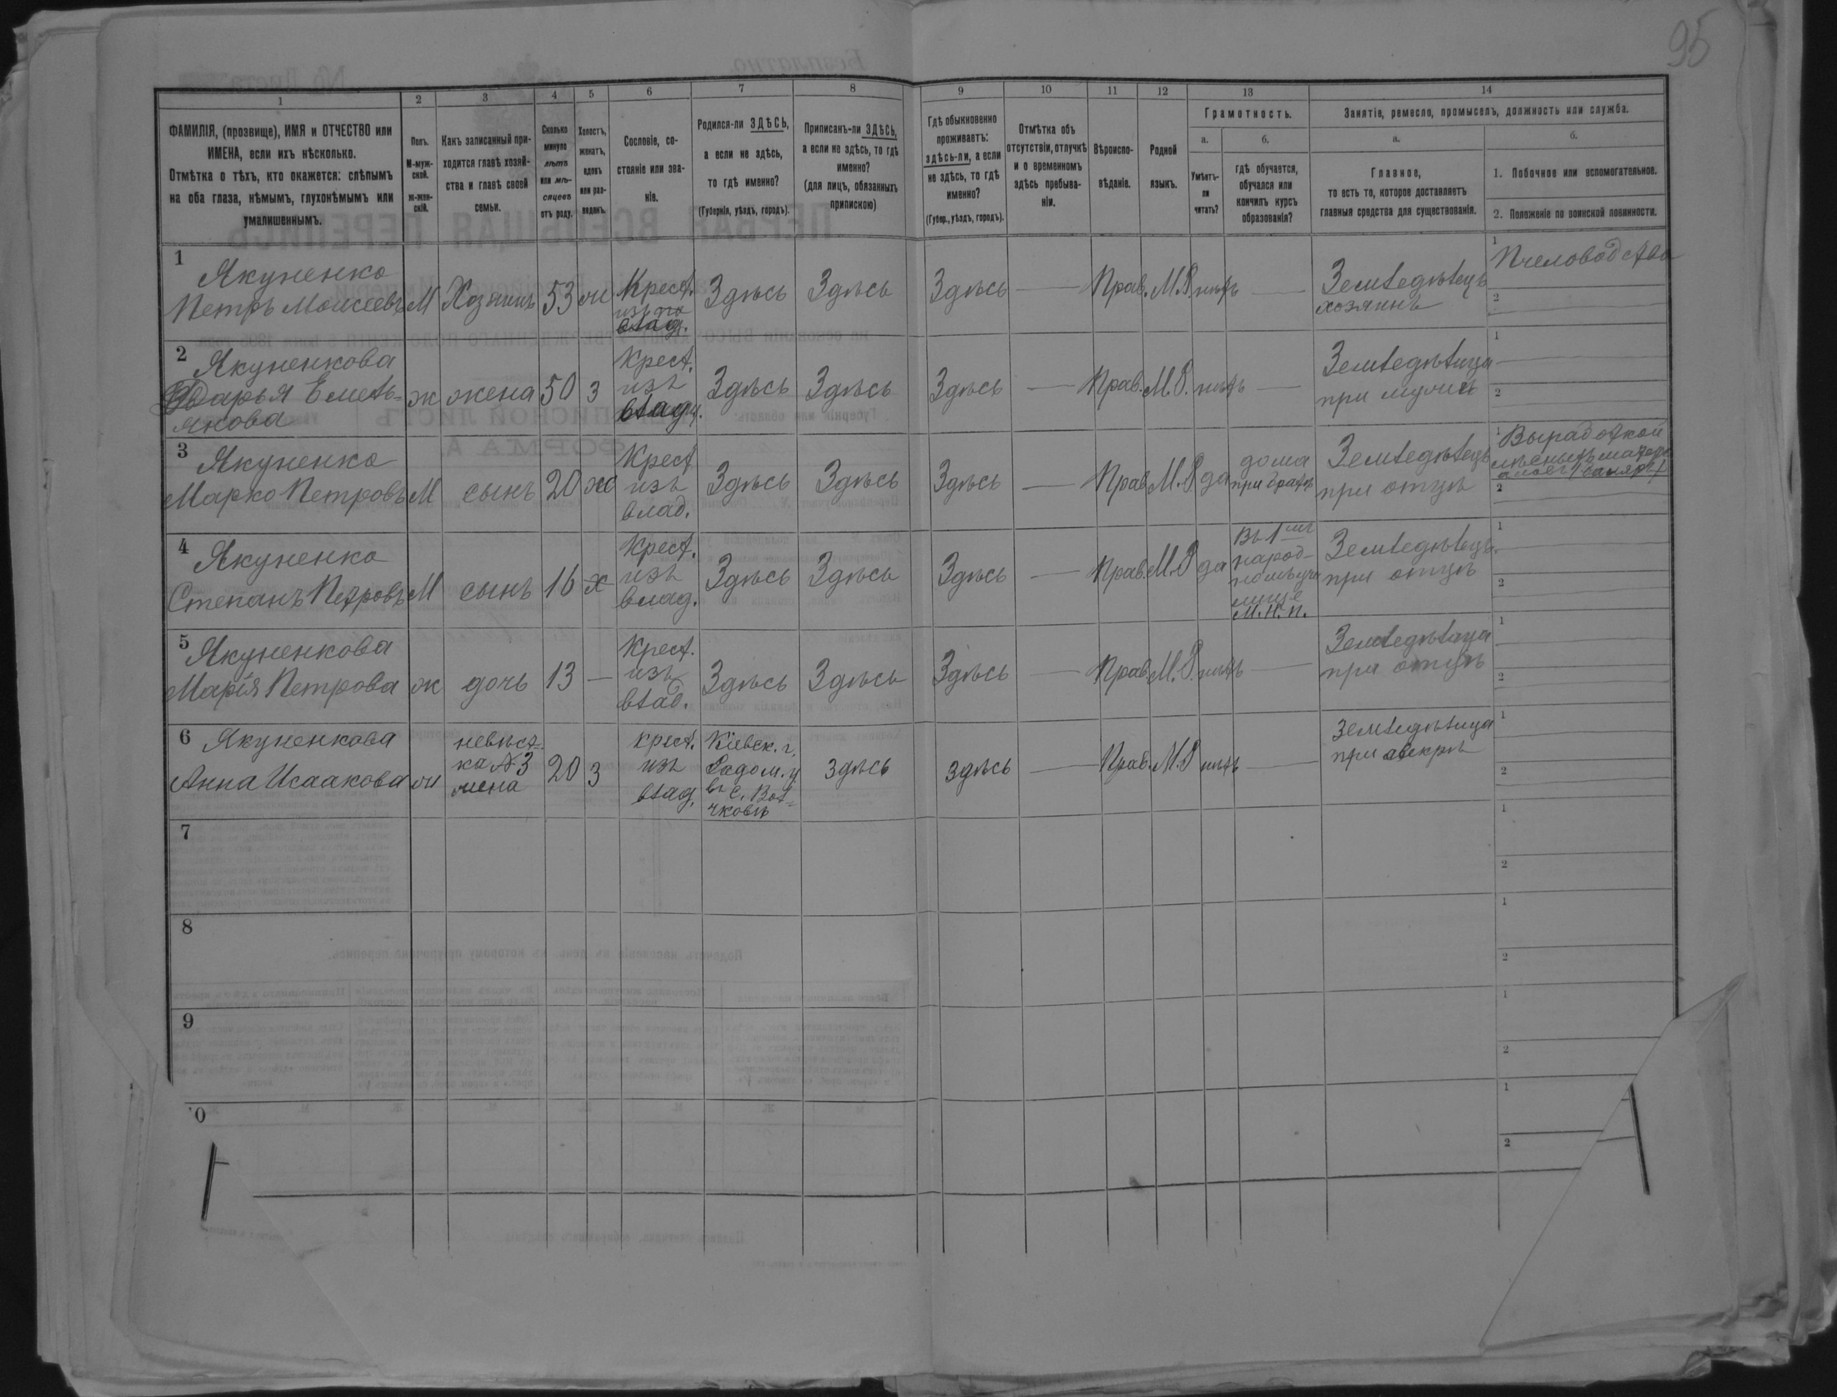 95
1
2
3
4
5
6
7
8
9
10
11
12
13
14
ФАМИЛІЯ, (прозвище), ИМЯ и ОТЧЕСТВО или
ИМЕНА, если ихъ нѣсколько.
Отмѣтка о тѣхъ, кто окажется: слѣпымъ
на оба глаза, нѣмымъ, глухонѣмымъ или
умалишеннымъ.
Полъ.
М-муж-
ской.
ж-жен-
скій.
Какъ записанный при-
ходится главѣ хозяй-
ства и главѣ своей
семьи.
Сколько
минуло
лѣтъ
или мѣ-
сяцевъ
отъ роду.
Холостъ,
женатъ,
вдовъ
или раз-
веденъ.
Сословіе, со-
стояніе или зва-
ніе.
Родился-ли ЗДѢСЬ,
а если не здѣсь,
то гдѣ именно?
(Губернія, уѣздъ, городъ).
Приписанъ-ли ЗДѢСЬ,
а если не здѣсь, то гдѣ
именно?
(для лицъ, обязанныхъ
припискою)
Гдѣ обыкновенно
проживаетъ:
здѣсь-ли, а если
не здѣсь, то гдѣ
именно?
(Губер., уѣздъ, городъ).
Отмѣтка объ
отсутствіи, отлучкѣ
и о временномъ
здѣсь пребыва-
ніи.
Вѣроиспо-
вѣданіе.
Родной
языкъ.
Грамотность.
а.
Умѣетъ-
ли
читать?
б.
гдѣ обучается,
обучался или
кончилъ курсъ
образованія?
Занятіе, ремесло, промыселъ, должность или служба.
а.
Главное,
то есть то, которое доставляетъ
главныя средства для существованія.
б.
1. Побочное или вспомогательное.
2. Положеніе по воинской повинности.
1
Якуненко
Петръ Моисеевъ М Хозяинъ 53 ж Крест.
изъ
влад. Здѣсь Здѣсь Здѣсь — Прав. М.Р. нѣтъ — Земледѣлецъ
хозяинъ
1 Пчеловодство
2
2
Якуненкова
Дарья Емель-
янова ж жена 50 З Крест.
изъ
влад. Здѣсь Здѣсь Здѣсь — Прав. М.Р. нѣтъ — Земледѣлица
при мужѣ
1
2
3
Якуненко
Марко Петровъ М сынъ 20 ж Крест
изъ
влад. Здѣсь Здѣсь Здѣсь — Прав. М.Р да дома
при братѣ Земледѣлецъ
при отцѣ
1 Выработкой
лѣсныхъ
2
4
Якуненко
Степанъ Петровъ М сынъ 16 х Крест.
изъ
влад. Здѣсь Здѣсь Здѣсь — Прав. М.Р да Въ 1
народ-
номъ учи-
лище
М.Н.П. Земледѣлецъ
при отцѣ
1
2
5
Якуненкова
Марія Петрова ж дочь 13 — Крест.
изъ
влад. Здѣсь Здѣсь Здѣсь — Прав. М.Р. нѣтъ — Земледѣлица
при отцѣ
1
2
6
Якуненкова
Анна Исаакова ж невѣст-
ка №3
жена 20 З крест.
изъ
влад. Кіевск. г.
Радом. у
въ с.
здѣсь здѣсь — Прав. М.Р нѣтъ — Земледѣлица
при свекрѣ
1
2
7
1
2
8
1
2
9
1
2
0
1
2